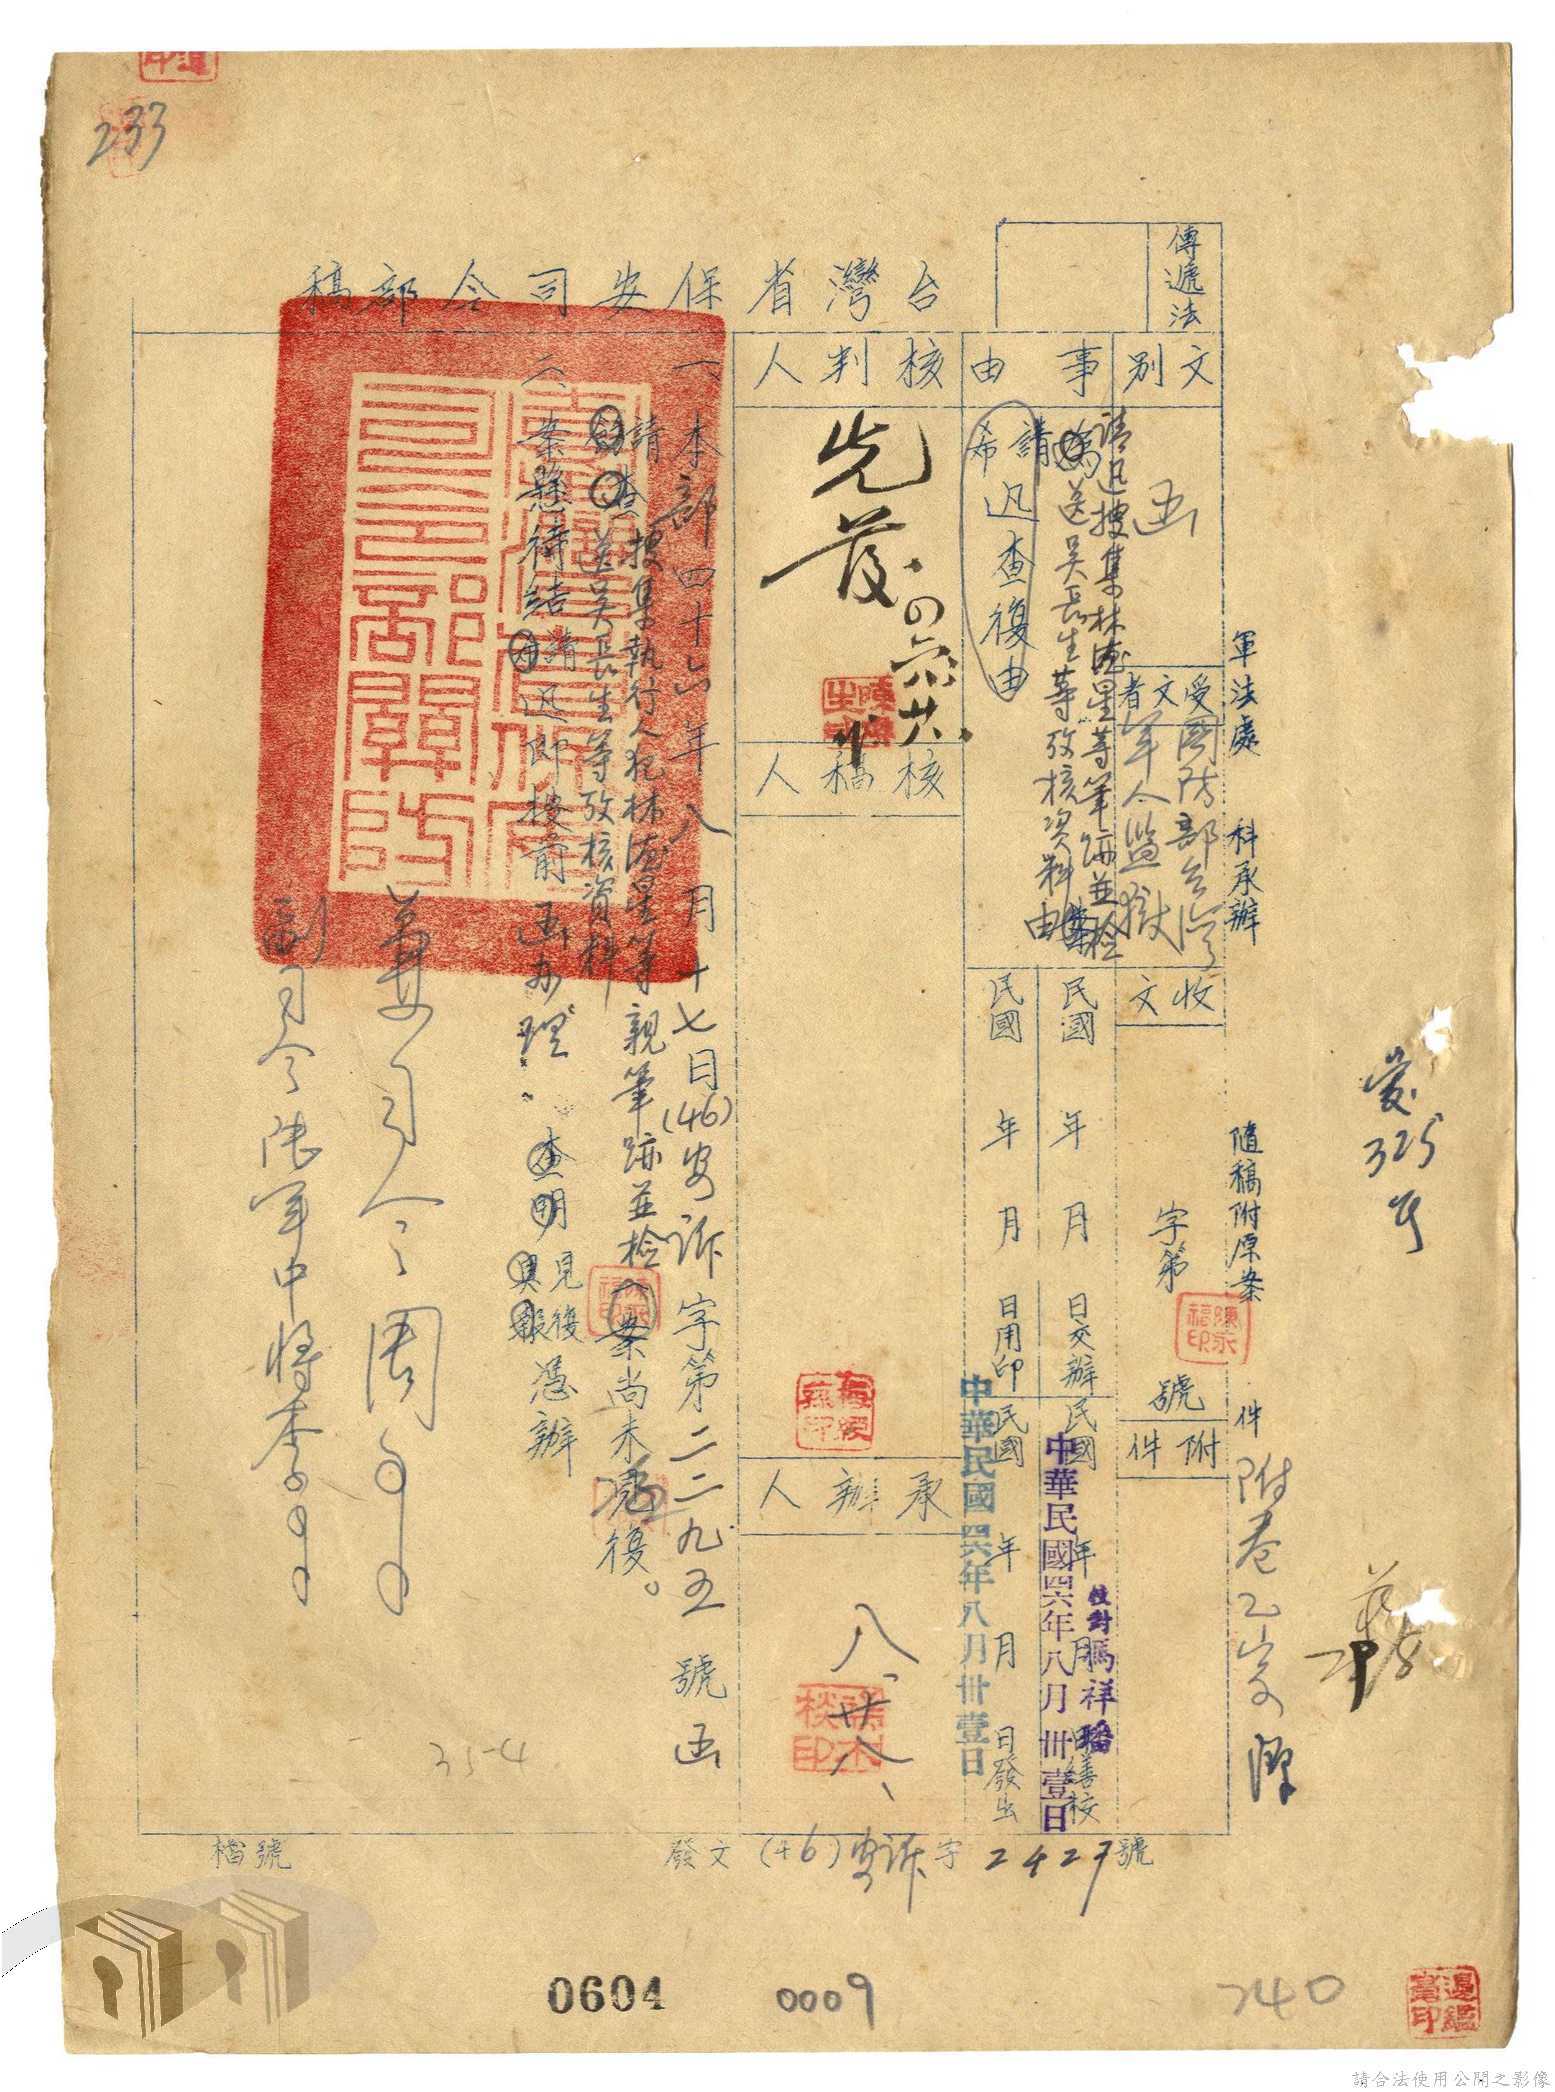 233
台灣省保安司令部稿
傳遞法
文別
函
受文者
國防部台灣軍人監獄
收文
字第
號
附件
軍法處
科承辦
隨稿附原案
件
附卷乙宗
事由
請迅搜集林德星等筆跡並檢
送吳長生等攷核資料由
希請迅查復由
民國 年 月 日交辦
民國 年 月 日繕校
民國 年 月 日用印
民國 年 月 日發出
中華民國四六年八月卅壹日
校對
中華民國四六年八月卅壹日
核判人
先發
核稿人
承辦人
八、廿八、
一、本部四十六年八月十七日(46)安訴字第二二九五號函
請搜集執行人犯林德星等親筆跡並檢案尚未見復。
查送吳長生等攷核資料
二、案懸待結請迅即按前函办理
查明見復憑辦
兼司令周
副司令陸軍中將李
325號
35-4
檔號
發文(46)安訴字2427號
0604
0009
240
請合法使用公開之影像